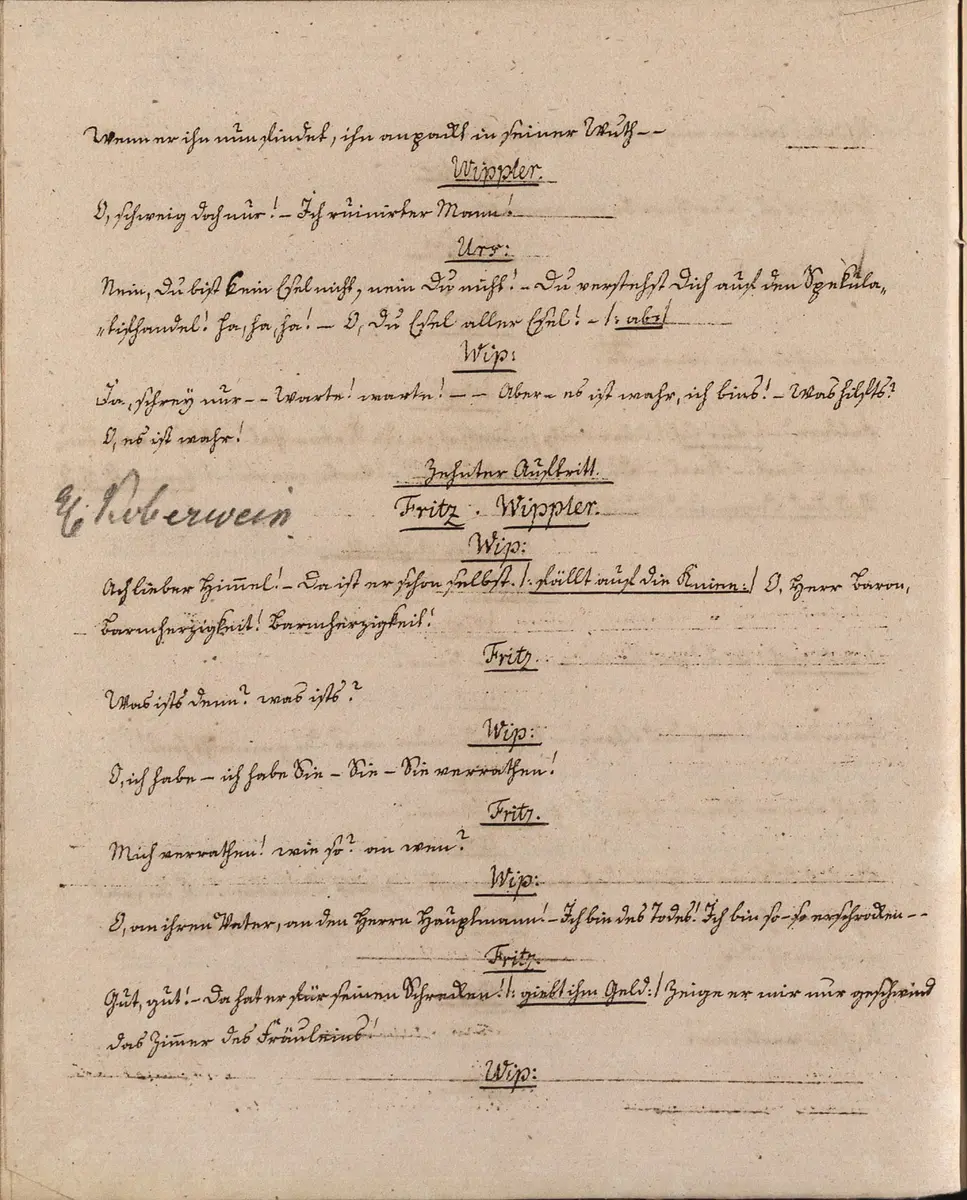 Wenn er ihn nun findet, ihn anpackt in seiner Wuth--
Wippler.
O, schweig doch nur! – Ich ruinirter Mann!
Urs:
Nein, Du bist kein Esel nicht, nein Du nicht! – Du verstehst Dich auf den Spekula„
„tifhandel! ha, ha, ha! – O, Du Esel aller Esel! – /: ab:/
Wip:
Ja, schrey nur -- Warte! warte! – – Aber – es ist wahr, ich bins! – Was hilfts?
O, es ist wahr!
Zehnter Auftritt.
Fritz. Wippler.
Koberwein
Wip:
Ach lieber Him̄el! – Da ist er schon selbst. /: fällt auf die Kniee:/ O, Herr Baron,
Barmherzigkeit! Barmherzigkeit!
Fritz.
Was ists denn? was ists?
Wip:
O, ich habe – ich habe Sie – Sie – Sie verrathen!
Fritz.
Mich verrathen! wie so? an wen?
Wip:
O, an ihren Vater, an den Herrn Hauptmann! – Ich bin des Todes! Ich bin so – so erschrocken --
Fritz.
Gut, gut! – Da hat er für seinen Schrecken! /: giebt ihm Geld:/ Zeige er mir nur geschwind
das Zim̄er des Fräuleins!
Wip: